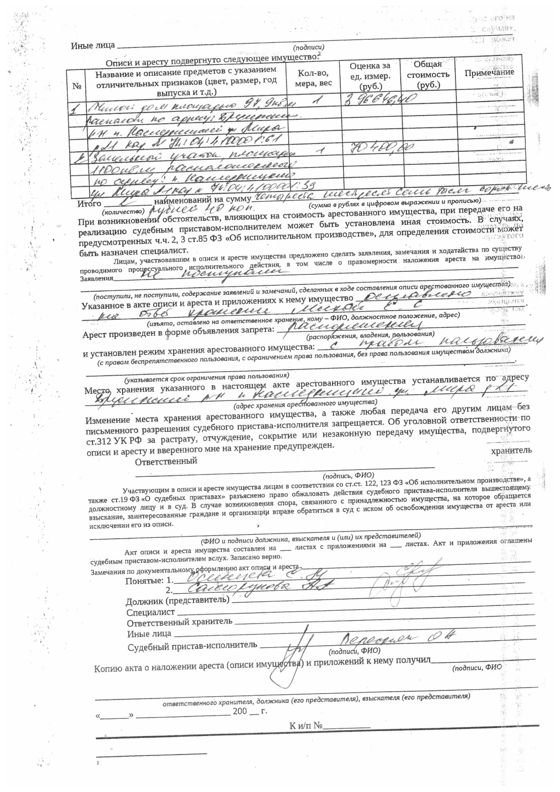 Иные лица
(подписи)
Описи и аресту подвергнуто следующее имущество:²
№ Название и описание предметов с указанием отличительных признаков (цвет, размер, год выпуска и т.д.) Кол-во, мера, вес Оценка за ед. измер. (руб.) Общая стоимость (руб.) Примечание
1 Жилой дом площадью 1
по адресу:
ул. Мира
2 Земельный участок площадью 1
по адресу:
ул. Мира
Итого 2 наименований на сумму
(количество) рублей 40 коп. (сумма в рублях к цифровом выражении и прописью)
При возникновении обстоятельств, влияющих на стоимость арестованного имущества, при передаче его на
реализацию судебным приставом-исполнителем может быть установлена иная стоимость. В случаях,
предусмотренных ч.ч. 2, 3 ст.85 ФЗ «Об исполнительном производстве», для определения стоимости может
быть назначен специалист.
Лицам, участвовавшим в описи и аресте имущества предложено сделать заявления, замечания и ходатайства по существу
проводимого процессуального исполнительного действия, в том числе о правомерности наложения ареста на имущество.
Заявления не поступили
(поступили, не поступили, содержание заявлений и замечаний, сделанных в ходе составления описи арестованного имущества)
Указанное в акте описи и ареста и приложениях к нему имущество оставлено
на отв. хранение
(изъято, оставлено на ответственное хранение, кому – ФИО, должностное положение, адрес)
Арест произведен в форме объявления запрета: распоряжения
(распоряжения, владения, пользования)
и установлен режим хранения арестованного имущества: с правом пользования
(с правом беспрепятственного пользования, с ограничением права пользования, без права пользования имуществом должника)
(указывается срок ограничения права пользования)
Место хранения указанного в настоящем акте арестованного имущества устанавливается по адресу
р-н ул. Мира
(адрес хранения арестованного имущества)
Изменение места хранения арестованного имущества, а также любая передача его другим лицам без
письменного разрешения судебного пристава-исполнителя запрещается. Об уголовной ответственности по
ст.312 УК РФ за растрату, отчуждение, сокрытие или незаконную передачу имущества, подвергнутого
описи и аресту и вверенного мне на хранение предупрежден.
Ответственный хранитель
(подпись, ФИО)
Участвующим в описи и аресте имущества лицам в соответствии со ст.ст. 122, 123 ФЗ «Об исполнительном производстве», а
также ст.19 ФЗ «О судебных приставах» разъяснено право обжаловать действия судебного пристава-исполнителя вышестоящему
должностному лицу и в суд. В случае возникновения спора, связанного с принадлежностью имущества, на которое обращается
взыскание, заинтересованные граждане и организации вправе обратиться в суд с иском об освобождении имущества от ареста или
исключении его из описи.
(ФИО и подписи должника, взыскателя и (или) их представителей)
Акт описи и ареста имущества составлен на ___ листах с приложениями на ___ листах. Акт и приложения оглашены
судебным приставом-исполнителем вслух. Записано верно.
Замечания по документальному оформлению акт описи и ареста
Понятые: 1.
2.
Должник (представитель)
Специалист
Ответственный хранитель
Иные лица
Судебный пристав-исполнитель
(подписи, ФИО)
Копию акта о наложении ареста (описи имущества) и приложений к нему получил
(подпись, ФИО
ответственного хранителя, должника (его представителя), взыскателя (его представителя)
«______» ____________________ 200 __ г.
К и/п №__________
1